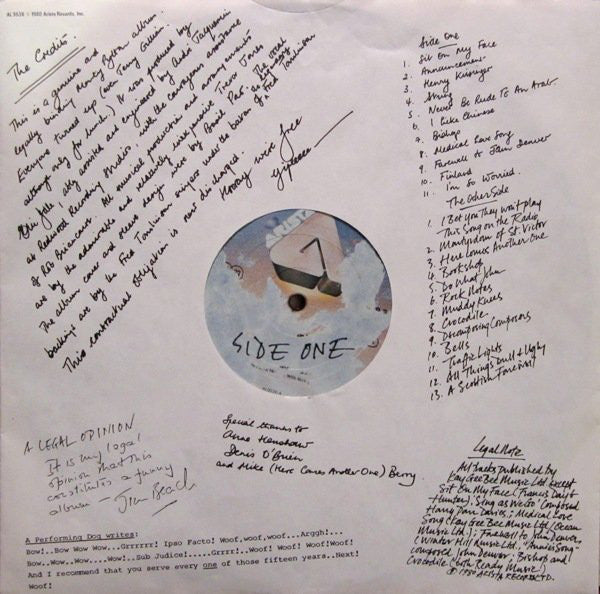 AL 9536 ℗ 1980 Arista Records, Inc.
The Credits.
This is a genuine and
legally binding Monty Python album.
Everyone turned up (even Terry Gilliam
although only for lunch.) It was produced by
Eric Idle, ably assisted and engineered by André Jacquemin
at Redwood Recording Studios, with the courageous assistance
of Rob Briancourt. All musical production and arrangements
are by the admirable and relatively inexpensive Trevor Jones
The album cover and demo design were by Basil Pao. The vocal
backings are by the Fred Tomlinson singers under the baton of Fred Tomlinson
as always
This contractual obligation is now discharged.
Hooray we're free
Side One
1. Sit On My Face
2. Announcement
3. Henry Kissinger
4. String
5. Never Be Rude To An Arab.
6. I Like Chinese
7. Bishop
8. Medical Love Song
9. Farewell to John Denver
10. Finland
11. I'm So Worried.
The Other Side
1. I Bet You They Won't play
This Song on the Radio
2. Martyrdom of St. Victor
3. Here Comes Another One
4. Bookshop
5. Do What John
6. Rock Notes
7. Muddy Knees
8. Crocodile
9. Decomposing Composers
10. Bells
11. Traffic Lights
12. All Things Dull & Ugly
13. A Scottish Farewell
ARISTA
SIDE ONE
A LEGAL OPINION
It is my legal
opinion that this
constitutes a funny
album –
Jim Beach
Special thanks to
Anne Henshaw
Denis O'Brien
and Mike (Here Comes Another One) Berry
A Performing Dog writes:
Bow!..Bow Wow Wow...Grrrrrr! Ipso Facto! Woof,woof,woof...Arggh!...
Bow..Wow..Wow....Wow!..Sub Judice!.....Grrrr!..Woof! Woof! Woof!Woof!
And I recommend that you serve every one of those fifteen years..Next!
Woof!
Legal Note
All tracks published by
Kay Gee Bee Music Ltd Except
Sit On My Face (Francis Day &
Hunter): Sing as We Go Composed
Harry Parr Davies; Medical Love
Song (Kay Gee Bee Music Ltd/Ocean
Music Ltd.); Farewell to John Denver,
(Winter Hill Music Ltd. "Annie's Song"
composed John Denver. Bishop and
Crocodile (both Ready Music)
℗ 1980 ARISTA RECORDS LTD.